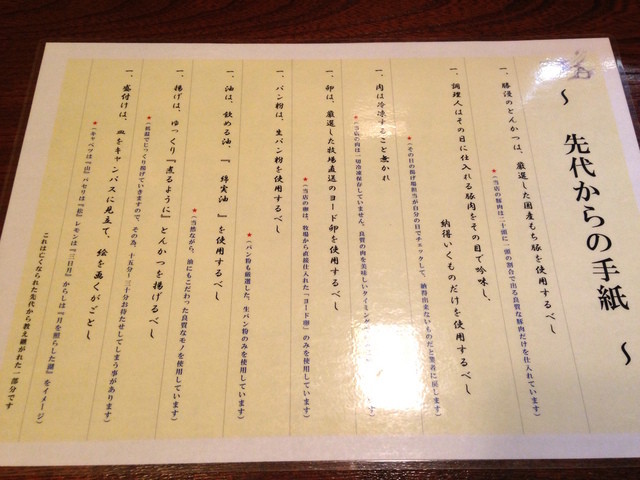 ～ 先代からの手紙 ～
一、勝漫のとんかつは、厳選した国産もち豚を使用するべし
★(当店の豚肉は二十頭に一頭の割合で出る良質な豚肉だけを仕入れています)
一、調理人はその日に仕入れる豚肉をその目で吟味し、
納得いくものだけを使用するべし
★(その日の揚げ場担当が自分の目でチェックして、納得出来ないものだと業者に戻します)
一、肉は冷凍すること無かれ
★(当店の肉は一切冷凍保存していません。良質の肉を美味しいタイミング
一、卵は、厳選した牧場直送のヨード卵を使用するべし
★(当店の卵は、牧場から直接仕入れた「ヨード卵」のみを使用しています)
一、パン粉は、生パン粉を使用するべし
★(パン粉も厳選した、生パン粉のみを使用しています)
一、油は、飲める油、『綿実油』を使用するべし
★(当然ながら、油にもこだわった良質なモノを使用しています)
一、揚げは、ゆっくり『煮るように』とんかつを揚げるべし
★(低温でじっくり揚げていきますので、その為、十五分～二十分お待たせしてしまう事があります)
一、盛付けは、皿をキャンバスに見立て、絵を画くがごとし
★(キャベツは『山』パセリは『松』レモンは『三日月』からしは『月を照らした湖』をイメージ)
これは亡くなられた先代から教え継がれた一部分です